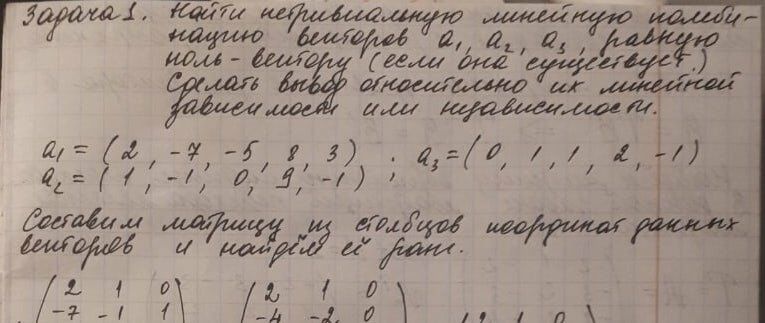 Задача 1. Найти нетривиальную линейную комби-
нацию векторов a₁, a₂, a₃, равную
ноль-вектору (если она существует.)
Сделать вывод относительно их линейной
зависимости или независимости.
a₁ = (2, -7, -5, 8, 3) ; a₃ = (0, 1, 1, 2, -1)
a₂ = (1, -1, 0, 9, -1) ;
Составим матрицу из столбцов координат данных
векторов и найдём её ранг.
2 1 0   2 1 0   2 1 0
-7 -1 1   -4 -2 0